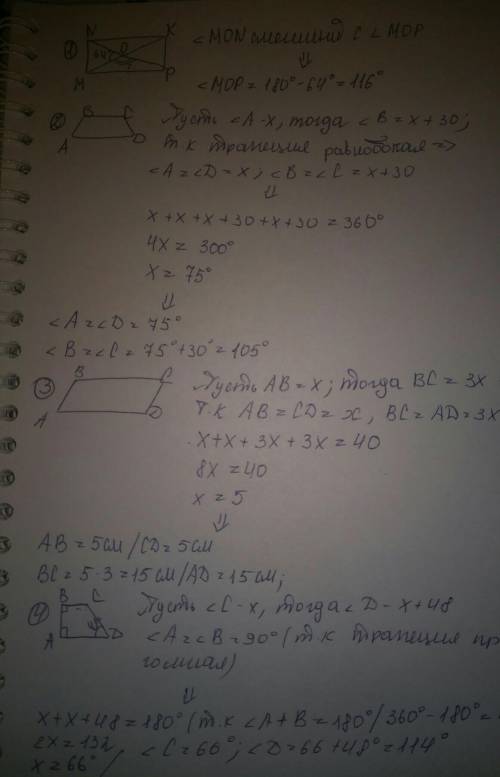 ① N K
64° O
M P
∠MON смежный с ∠MOP
⇓
∠MOP = 180° - 64° = 116°
② B C
A D
Пусть ∠A - x, тогда ∠B = x + 30;
т.к трапеция равнобокая =>
∠A = ∠D = x; ∠B = ∠C = x + 30
⇓
x + x + x + 30 + x + 30 = 360°
4x = 300°
x = 75°
⇓
∠A = ∠D = 75°
∠B = ∠C = 75° + 30° = 105°
③ B C
A D
Пусть AB = x; тогда BC = 3x
т.к AB = CD = x, BC = AD = 3x
x + x + 3x + 3x = 40
8x = 40
x = 5
⇓
AB = 5см / CD = 5см
BC = 5·3 = 15см / AD = 15см;
④ B C
A D
Пусть ∠C - x, тогда ∠D - x + 48
∠A = ∠B = 90° (т.к трапеция пр
⇓
x + x + 48 = 180° (т.к ∠A + B = 180° / 360° - 180° =
2x = 132, ∠C = 66°; ∠D = 66 + 48° = 114°
x = 66°